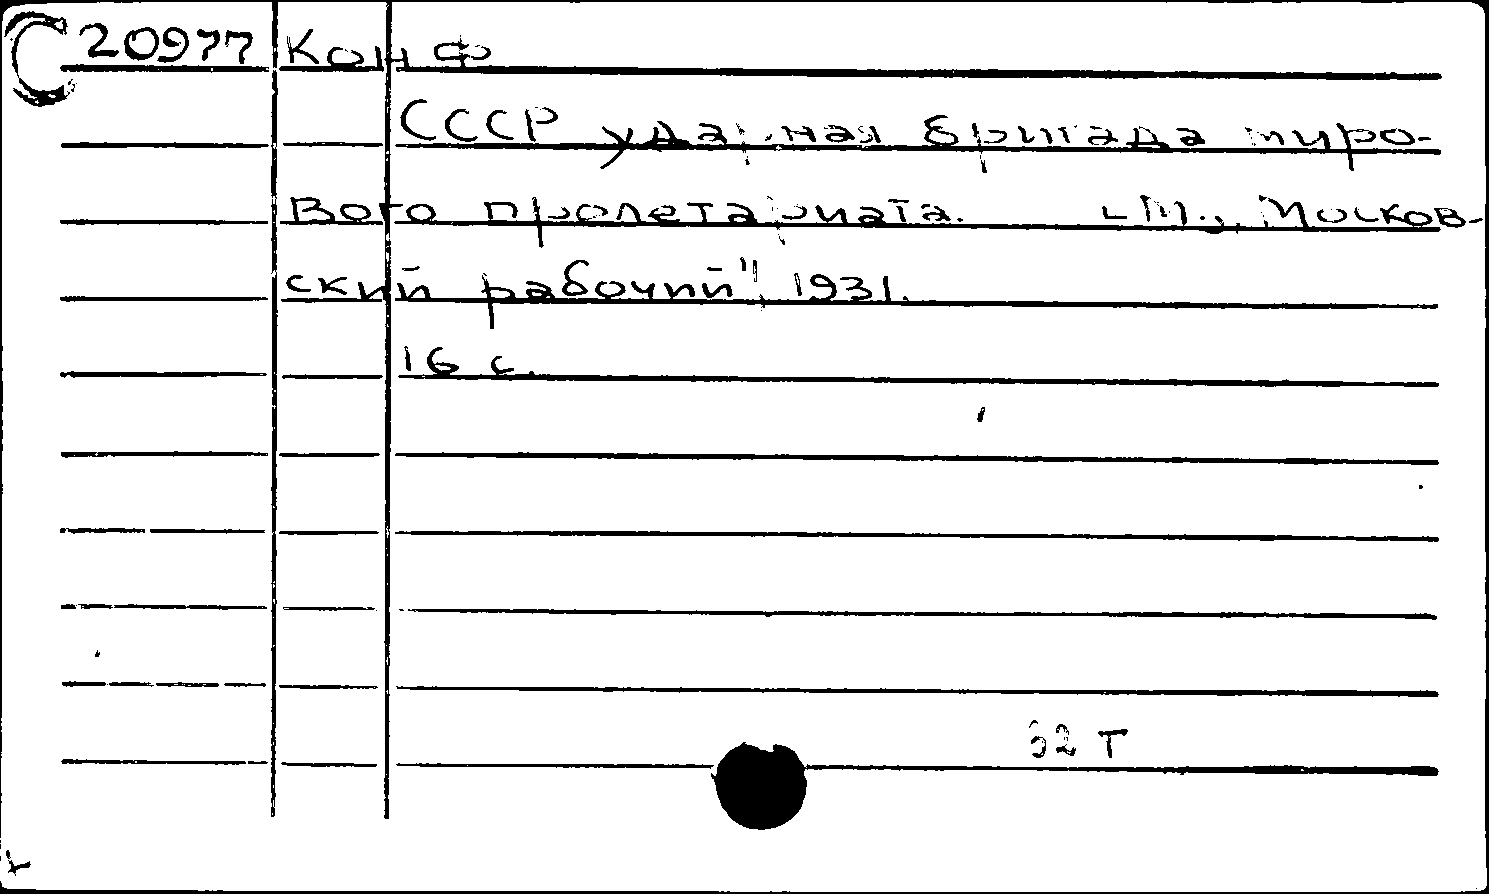 С 20977 Конф
СССР ударная бригада миро-
вого пролетариата. - М., Москов-
ский рабочий", 1931.
16 с.
32 т